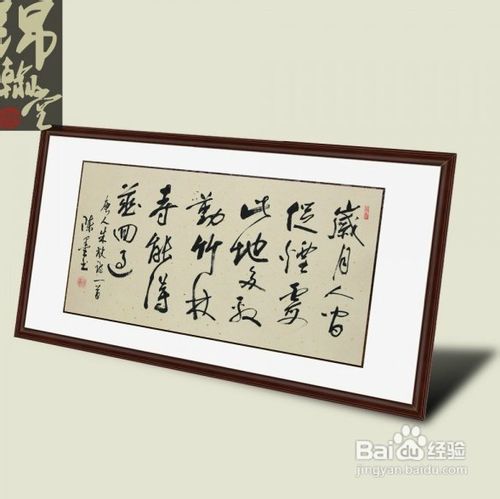 錦翰堂
歲月人間
促煙霞
此地多殷
勤竹林
寺能得
幾回過
唐人朱放詩一首
陳墨書
Bai du 经验
jingyan.baidu.com